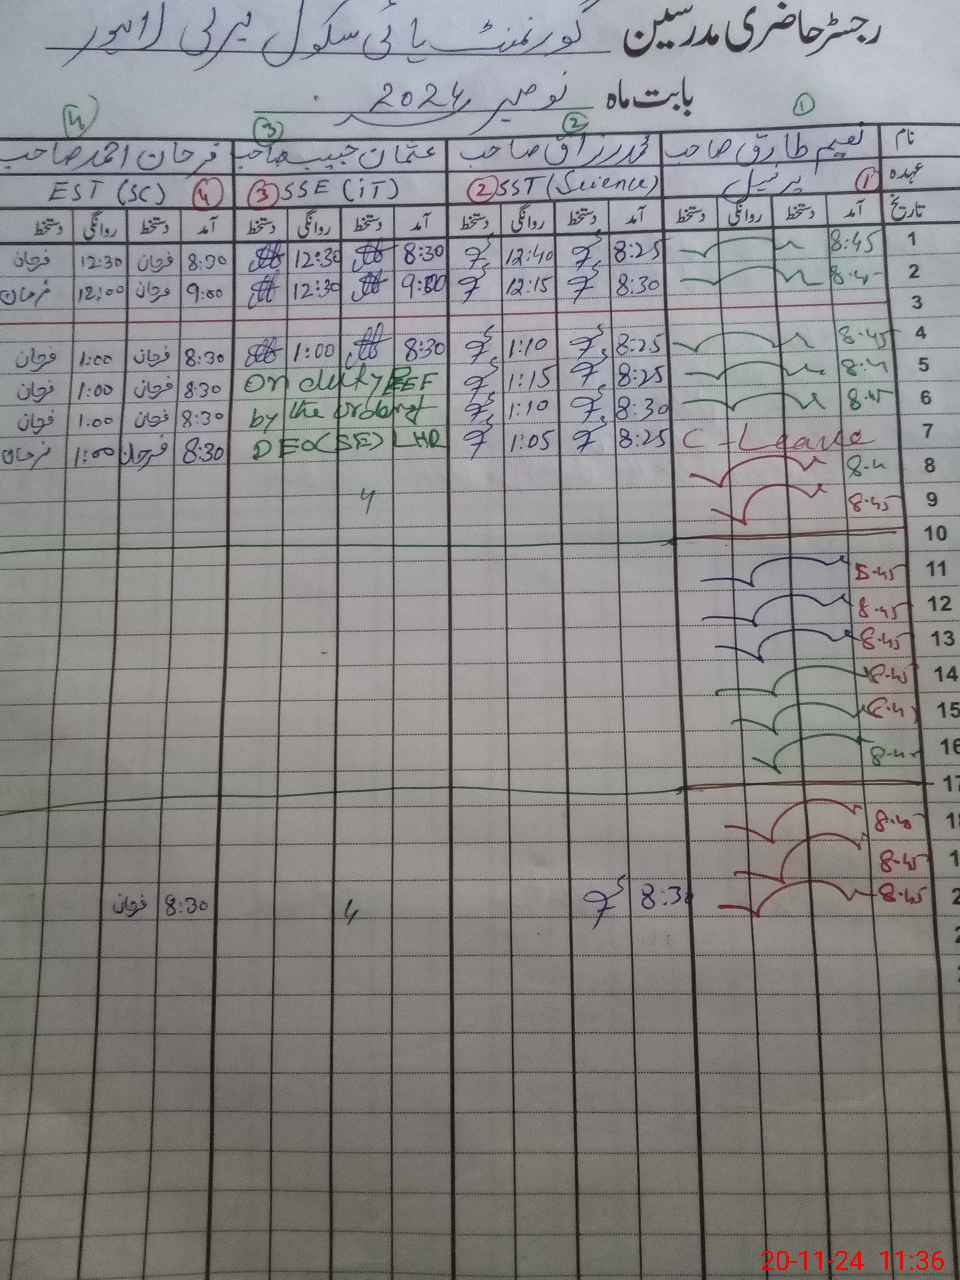 رجسٹر حاضری مدرسین گورنمنٹ ہائی سکول
بابت ماہ نومبر 2024
① ② ③ 4
نام نعیم طارق صاحب محمد رزاق صاحب عثمان حبیب صاحب فرحان احمد صاحب
عہدہ ① پرنسپل ② SST (Science) ③ SSE (iT) 4 EST (SC)
تاریخ آمد دستخط روانگی دستخط آمد دستخط روانگی دستخط آمد دستخط روانگی دستخط آمد دستخط روانگی دستخط
1 8:45 8:25 12:40 8:30 12:30 8:30 فرحان 12:30 فرحان
2 8:30 12:15 9:00 12:30 9:00 فرحان 12:00 فرحان
3
4 8.45 8:25 1:10 8:30 1:00 8:30 فرحان 1:00 فرحان
5 8:25 1:15 On duty PEEF 8:30 فرحان 1:00 فرحان
6 8.45 8:30 1:10 by the order of 8:30 فرحان 1:00 فرحان
7 C - Leave 8:25 1:05 DEO(SE) LHR 8:30 فرحان 1:00 فرحان
8
9 8.45
10
11 8.45
12 8.45
13 8.45
14 8.45
15
16
17
8.45
8.45 8:30 8:30 فرحان
20-11-24 11:36